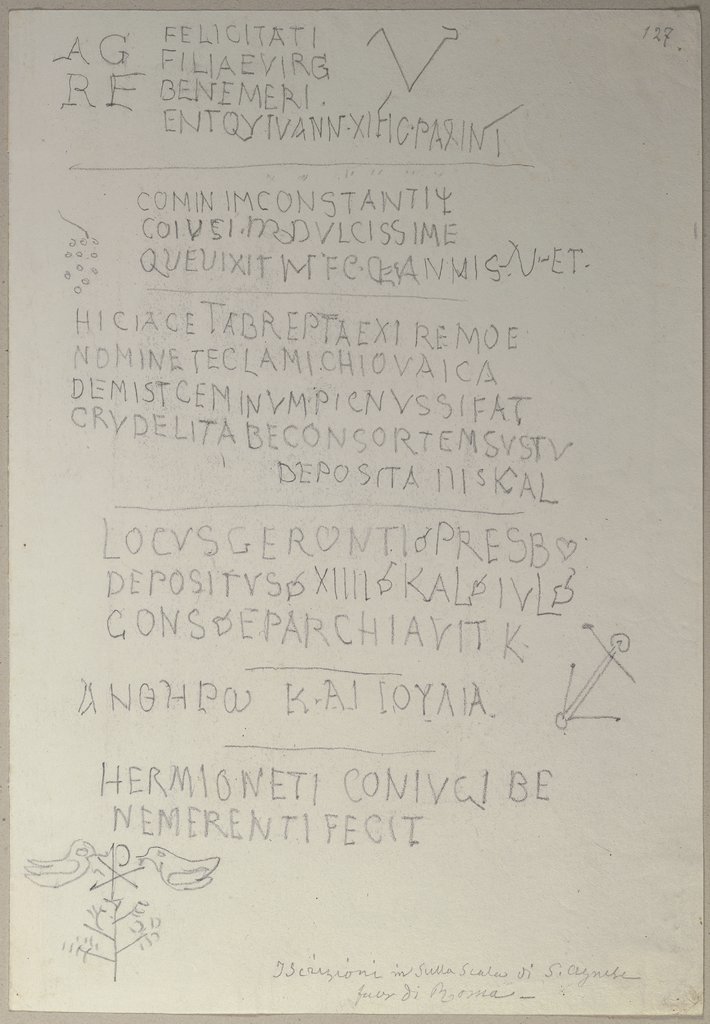 127.
AG FELICITATI
FILIAEVIRG
RE BENEMERI.
COMIN IMCONSTANTIV
DVLCISSIME
QUEUIXIT ANMIS ET.
HICIACE TABREPTAEXIREMOE
NOMINETECLAMICHIOVAICA
DEMISTCEMINVMPICNVSSIFAT
CRVDELITABECONSORTEMSVSTV
DEPOSITA IIIsKAL
LOCVSGERONTI PRESB
DEPOSITVS XIIII KAL IVL
CONS EPARCHIAVITK
ΑΝΘΗΡω Κ·ΑΙ ΙΟΥΛΙΑ.
HERMIONETI CONIVGI BE
NEMERENTIFECIT
Iscrizioni in sulla Scala di S. Agnese
fuor di Roma